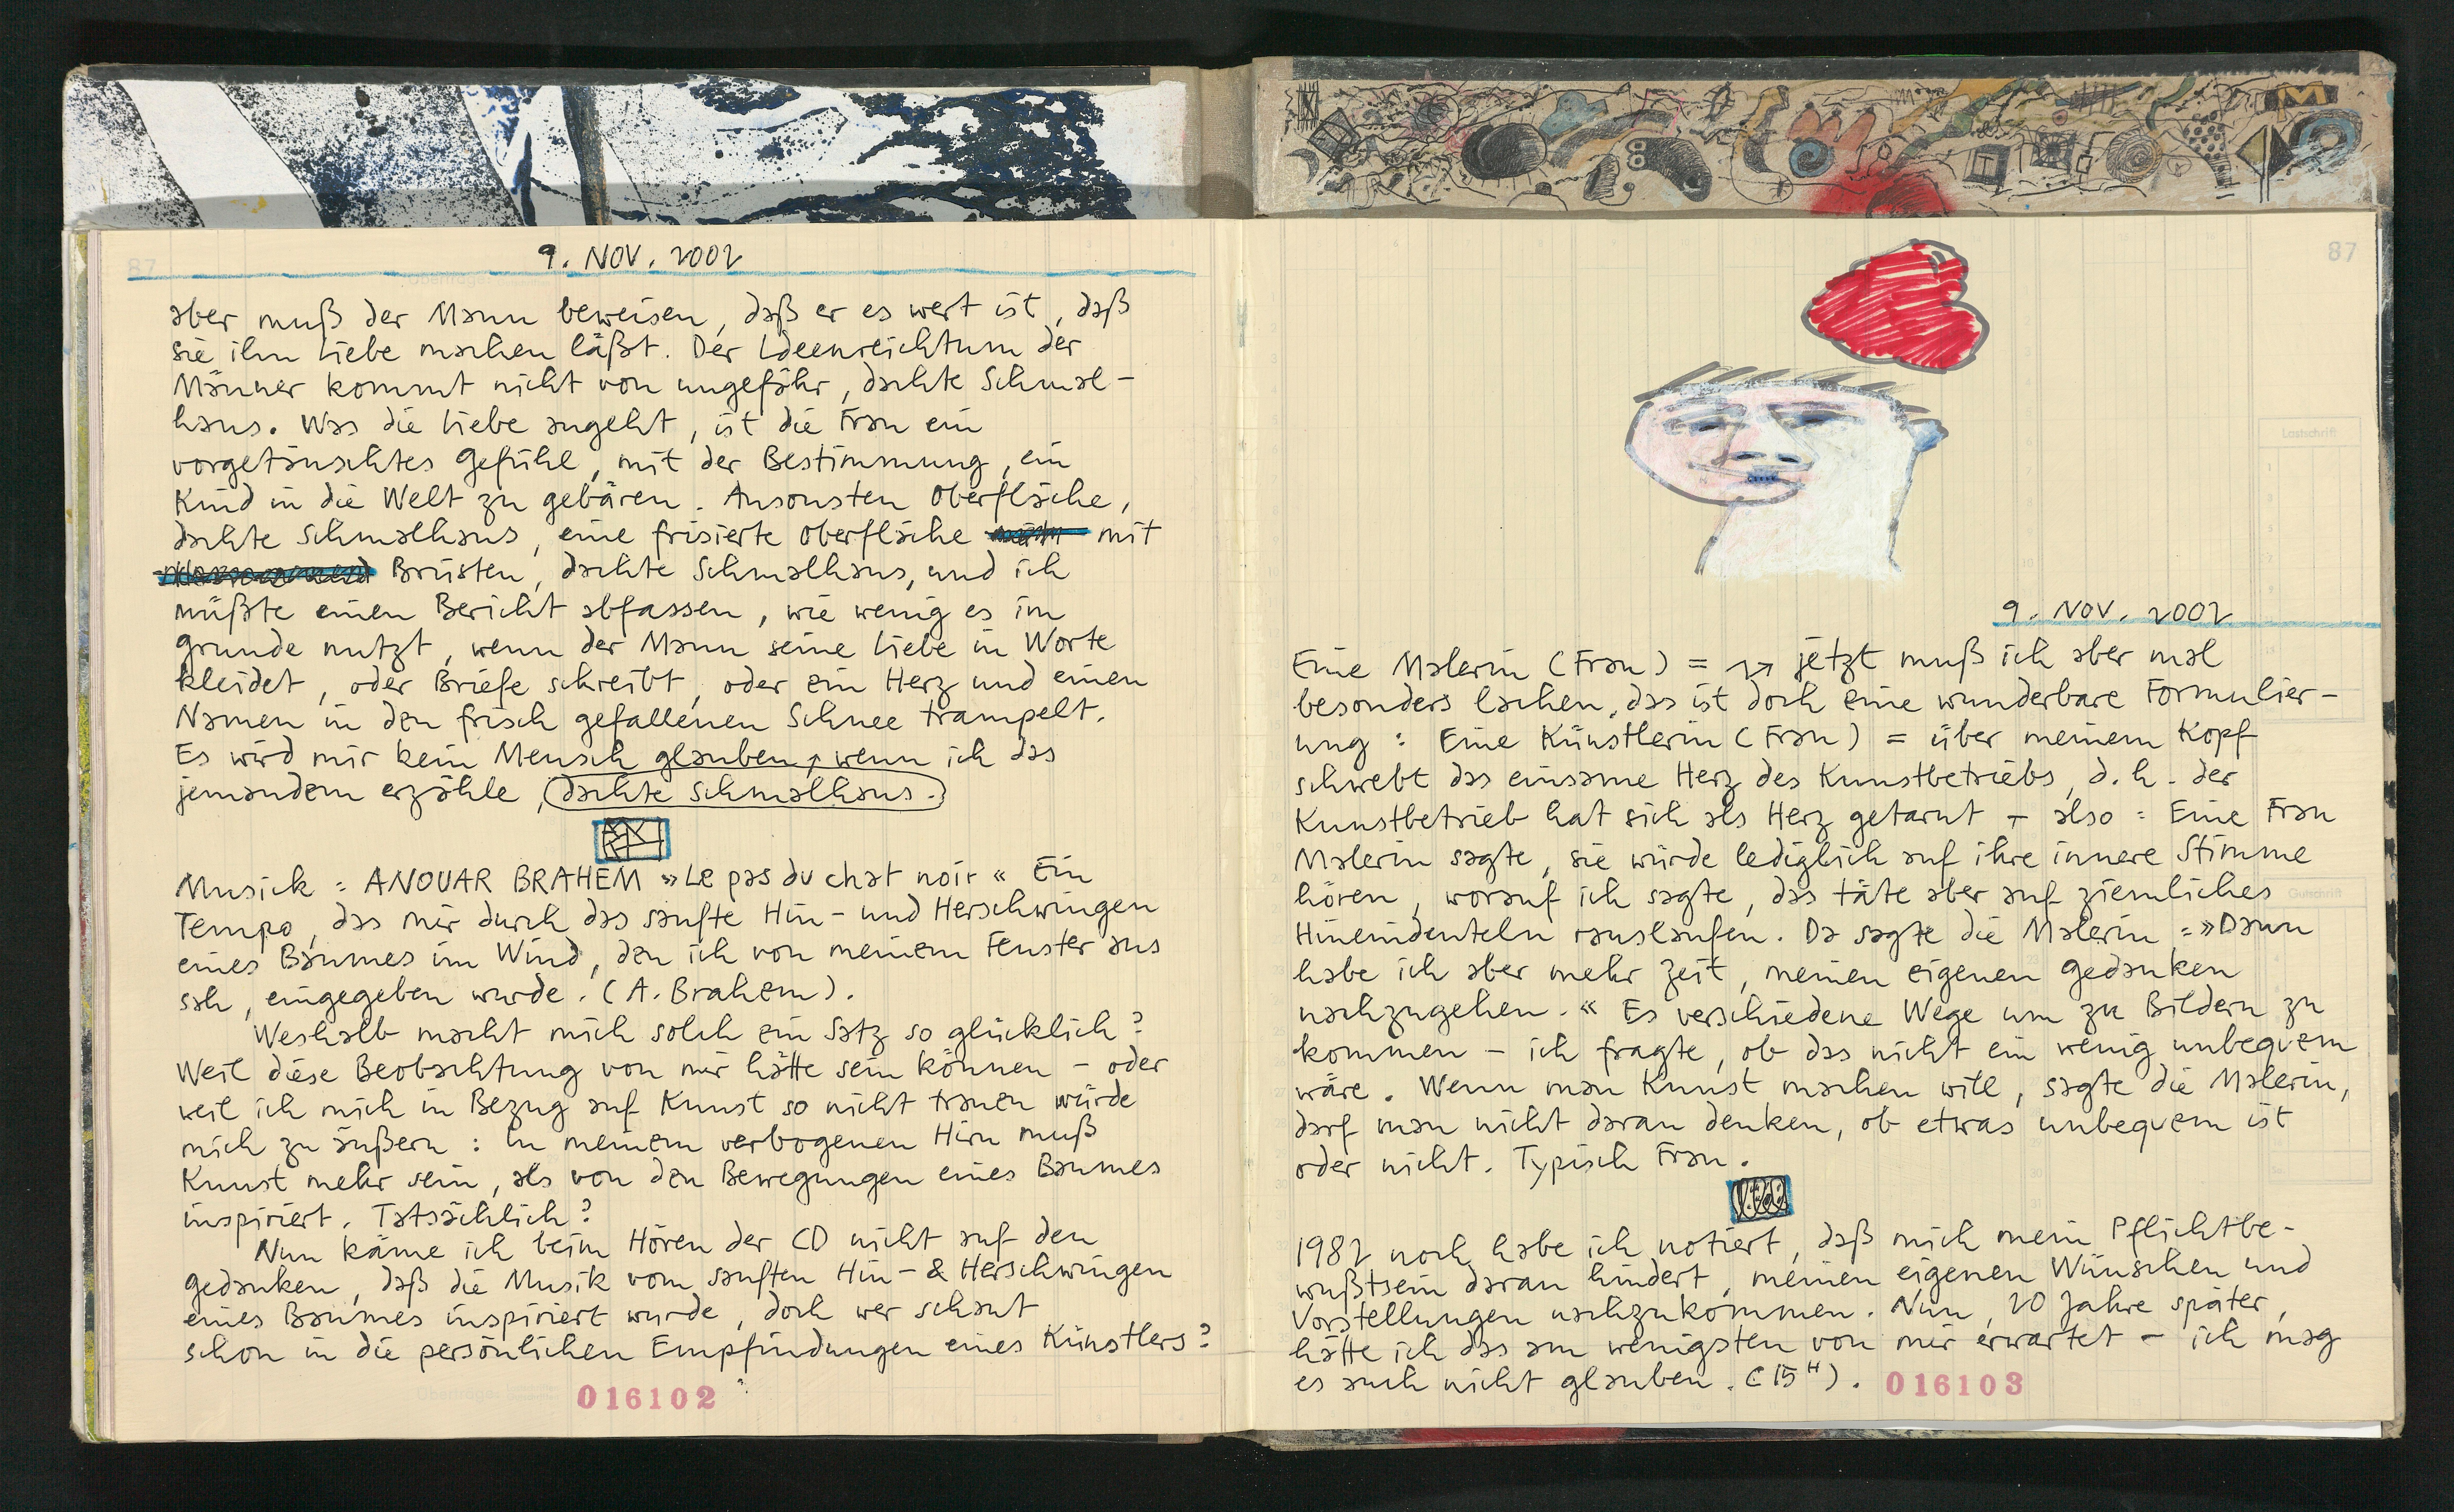 9. NOV. 2002
aber muß der Mann beweisen, daß er es wert ist, daß
sie ihn Liebe machen läßt. Der Ideenreichtum der
Männer kommt nicht von ungefähr, dachte Schmal-
haus. Was die Liebe angeht, ist die Frau ein
vorgetäuschtes Gefühl, mit der Bestimmung, ein
Kind in die Welt zu gebären. Ansonsten Oberfläche,
dachte Schmalhaus, eine frisierte Oberfläche mit
Brüsten, dachte Schmalhaus, und ich
müßte einen Bericht abfassen, wie wenig es im
Grunde nutzt, wenn der Mann seine Liebe in Worte
kleidet, oder Briefe schreibt, oder ein Herz und einen
Namen in den frisch gefallenen Schnee trampelt.
Es wird mir kein Mensch glauben, wenn ich das
jemandem erzähle, dachte Schmalhaus.
Musick: ANOUAR BRAHEM »Le pas du chat noir« Ein
Tempo, das mir durch das sanfte Hin- und Herschwingen
eines Baumes im Wind, den ich von meinem Fenster aus
sah, eingegeben wurde. (A. Brahem).
Weshalb macht mich solch ein Satz so glücklich?
Weil diese Beobachtung von mir hätte sein können – oder
weil ich mich in Bezug auf Kunst so nicht trauen würde
mich zu äußern: In meinem verbogenen Hirn muß
Kunst mehr sein, als von den Bewegungen eines Baumes
inspiriert. Tatsächlich?
Nun käme ich beim Hören der CD nicht auf den
Gedanken, daß die Musik vom sanften Hin- & Herschwingen
eines Baumes inspiriert wurde, doch wer schaut
schon in die persönlichen Empfindungen eines Künstlers?
016102
87
Lastschrift
9. NOV. 2002
Eine Malerin (Frau) = jetzt muß ich aber mal
besonders lachen, das ist doch eine wunderbare Formulier-
ung: Eine Künstlerin (Frau) = über meinem Kopf
schwebt das einsame Herz des Kunstbetriebs, d.h. der
Kunstbetrieb hat sich als Herz getarnt – also: Eine Frau
Malerin sagte, sie würde lediglich auf ihre innere Stimme
hören, worauf ich sagte, das täte aber auf ziemliches
Hineindeuteln rauslaufen. Da sagte die Malerin: »Dann
habe ich aber mehr Zeit, meinen eigenen Gedanken
nachzugehen.« Es verschiedene Wege um zu Bildern zu
kommen – ich fragte, ob das nicht ein wenig unbequem
wäre. Wenn man Kunst machen will, sagte die Malerin,
darf man nicht daran denken, ob etwas unbequem ist
oder nicht. Typisch Frau.
Gutschrift
1982 noch habe ich notiert, daß mich mein Pflichtbe-
wußtsein daran hindert, meinen eigenen Wünschen und
Vorstellungen nachzukommen. Nun, 20 Jahre später,
hätte ich das am wenigsten von mir erwartet – ich mag
es auch nicht glauben. (15 H).
016103